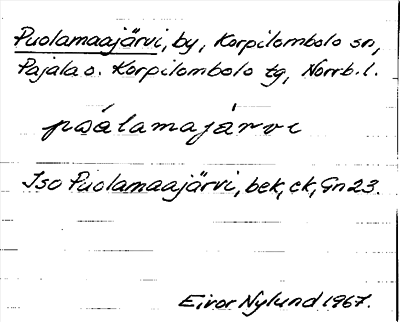 Puolamaajärvi, by, Korpilombolo sn,
Pajala o. Korpilombolo tg, Norrb. l.
påàlamajárvi
Iso Puolamaajärvi, bek, ek, Gn 23.
Eivor Nylund 1967.